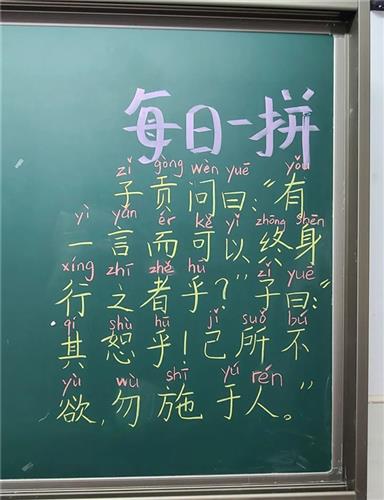 每日一拼
zǐ gòng wèn yuē yǒu
子贡问曰:“有
yì yán ér kě yǐ zhōng shēn
一言而可以终身
xíng zhī zhě hū zǐ yuē
行之者乎?”子曰:“
qí shù hū jǐ suǒ bú
其恕乎!己所不
yù wù shī yú rén
欲,勿施于人。”